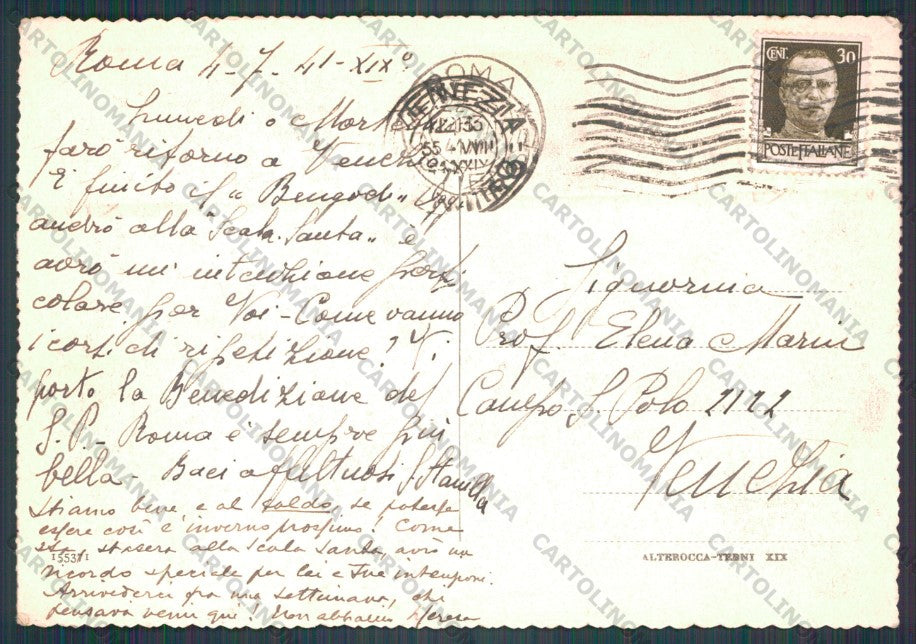 Roma 4-7-41-XIX°
Lunedi o Mart
farò ritorno a Venezia
E' finito il "Bengodi" oggi
andrò alla "Scala Santa" e
avrò un' intenzione parti
colare per Voi - Come vanno
i corsi di ripetizione? Vi
porto la Benedizione del
S. P. - Roma è sempre più
bella - Baci affettuosi
Stiamo bene, e al caldo, se potesse
essere così l'inverno prossimo! Come
sta, stasera alla Scala Santa, avrò un
ricordo speciale per lei e sue intenzioni.
Arrivederci fra una settimana, chi
pensava venir qui! Non abbiamo
ROMA
VENEZIA
CENT. 30
POSTE ITALIANE
Signorina
Prof. Elena Marin
Campo S. Polo 2122
Venezia
15537/1
ALTEROCCA-TERNI XIX
CARTOLINOMANIA